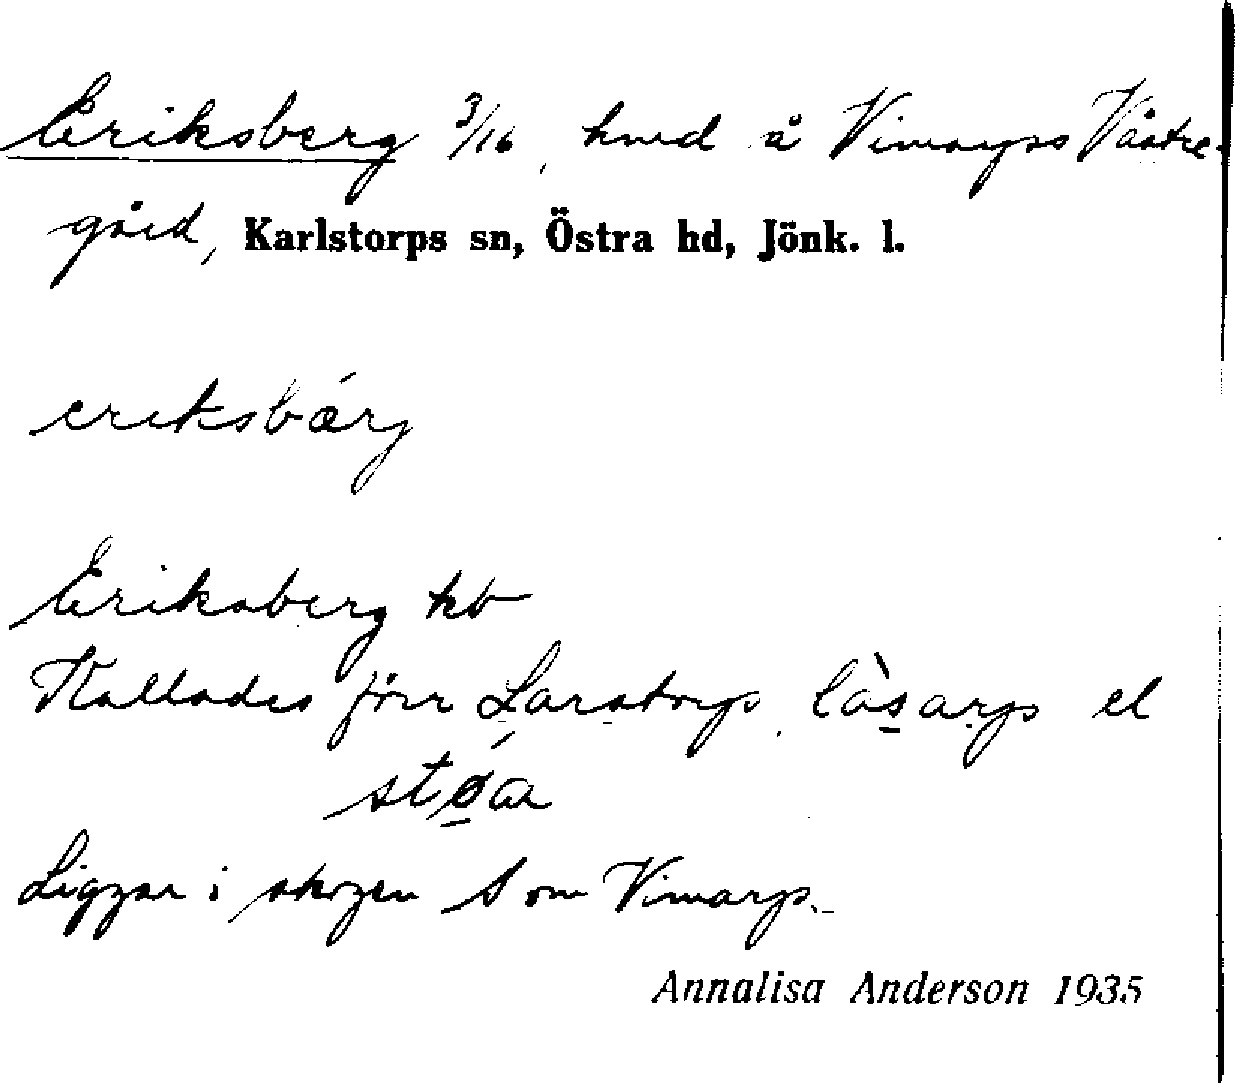 Eriksberg 3/16, hmd å Vimarps Västre-
gård, Karlstorps sn, Östra hd, Jönk. l.
eriksbǽrj
Eriksberg kb
Kallades förr Larstorp, làs̲arps el
stǿ̲ar
Ligger i skogen S om Vimarp.
Annalisa Anderson 1935